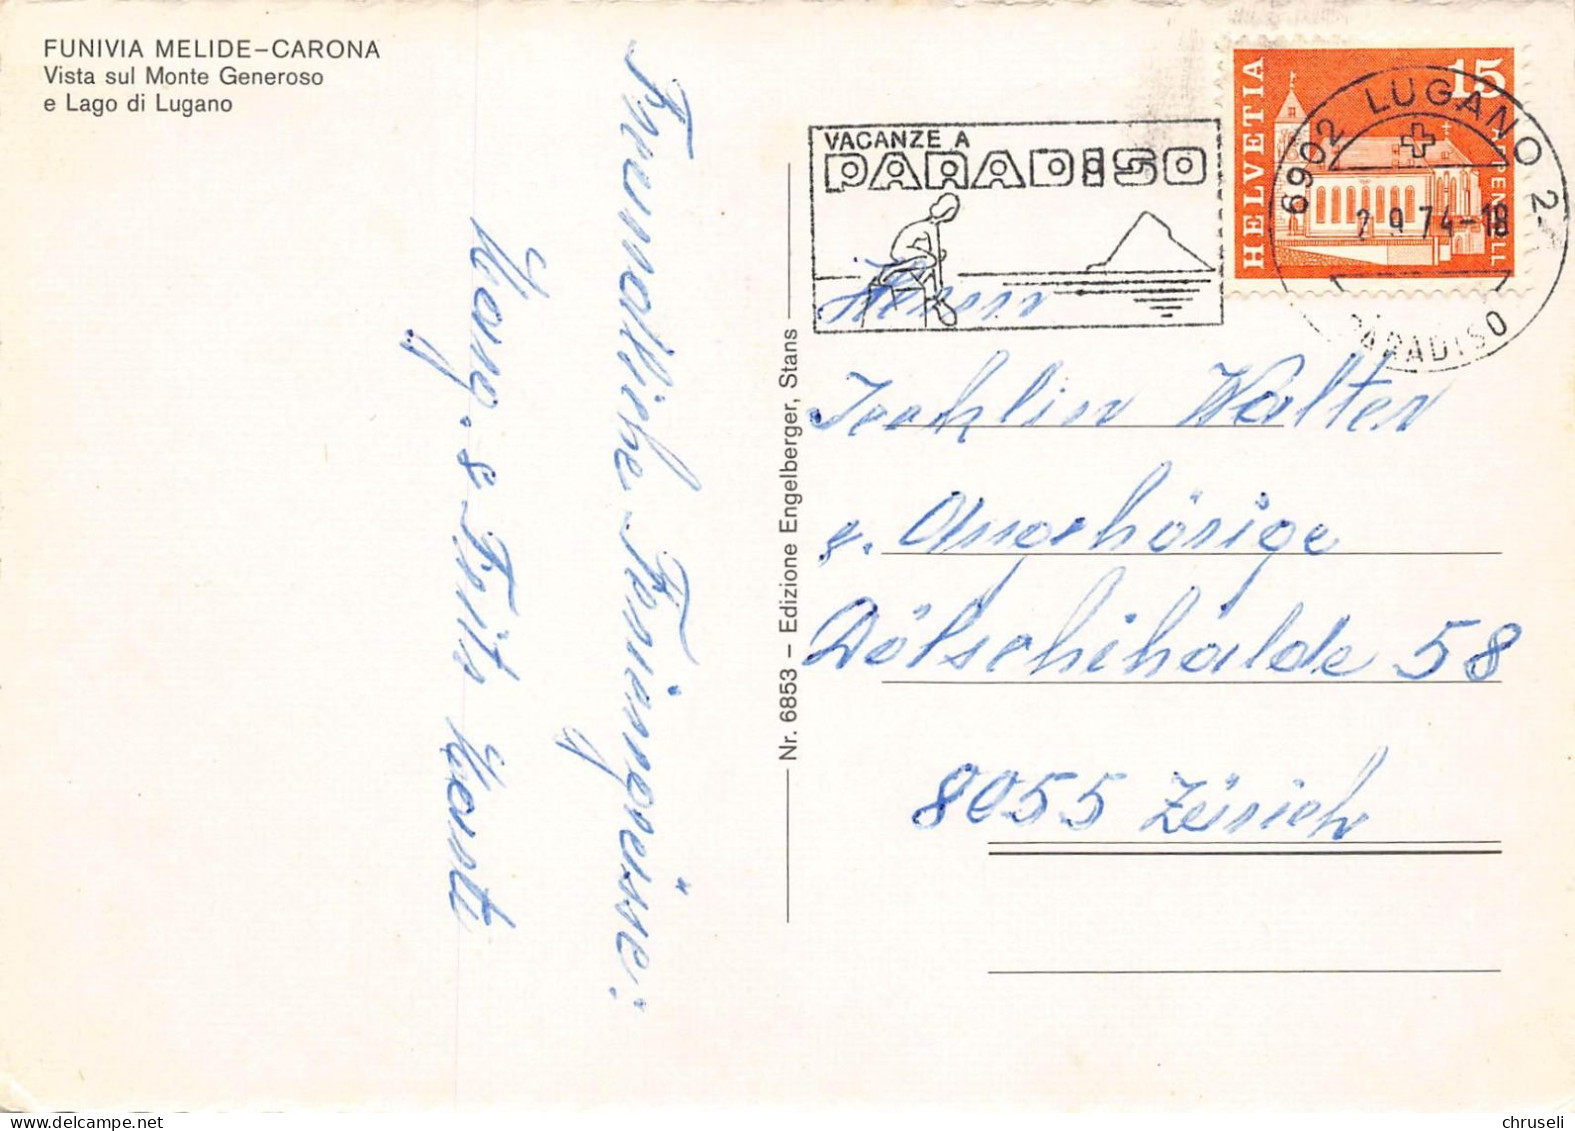 FUNIVIA MELIDE–CARONA
Vista sul Monte Generoso
e Lago di Lugano
Freundliche Feriengrüsse:
Marg. & Fritz Marti
Nr. 6853 – Edizione Engelberger, Stans
VACANZE A
PARADISO
HELVETIA
15
APPENZELL
6902 LUGANO 2
2.9.74-18
PARADISO
Herrn
Walter
& Angehörige
Döltschihalde 58
8055 Zürich
chruseli